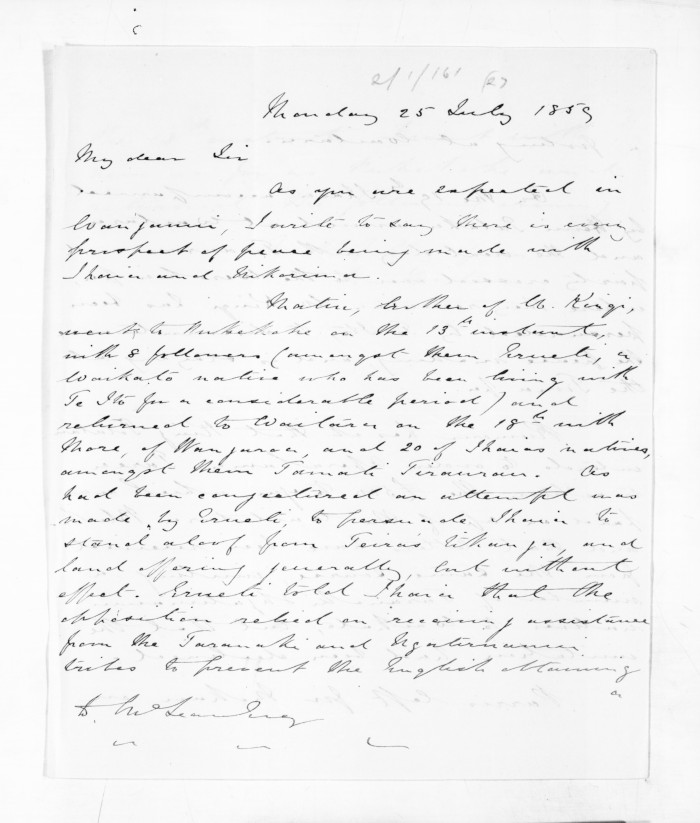 2/1/161 (27
Monday 25 July 1859
My dear Sir
As you are expected in
Wanganui, I write to say there is every
prospect of peace being made with
Ihaia and Nikorima.
Matiu, brother of W. Kingi,
went to on the 13th instant,
with 8 followers (amongst them Erueti, a
Waikato native who has been living with
Te Ito for a considerable period) and
returned to Waitara on the 18th with
More, of and 20 of Ihaias natives,
amongst them Tamati Tiraurau. As
had been conjectured an attempt was
made, by Erueti, to persuade Ihaia to
stand aloof from Teira's tikanga, and
land offering generally, but without
effect. Erueti told Ihaia that the
opposition relied on receiving assistance
from the Taranaki and Ngatiruanui
tribes to prevent the English obtaining
a
D. McLean Esq